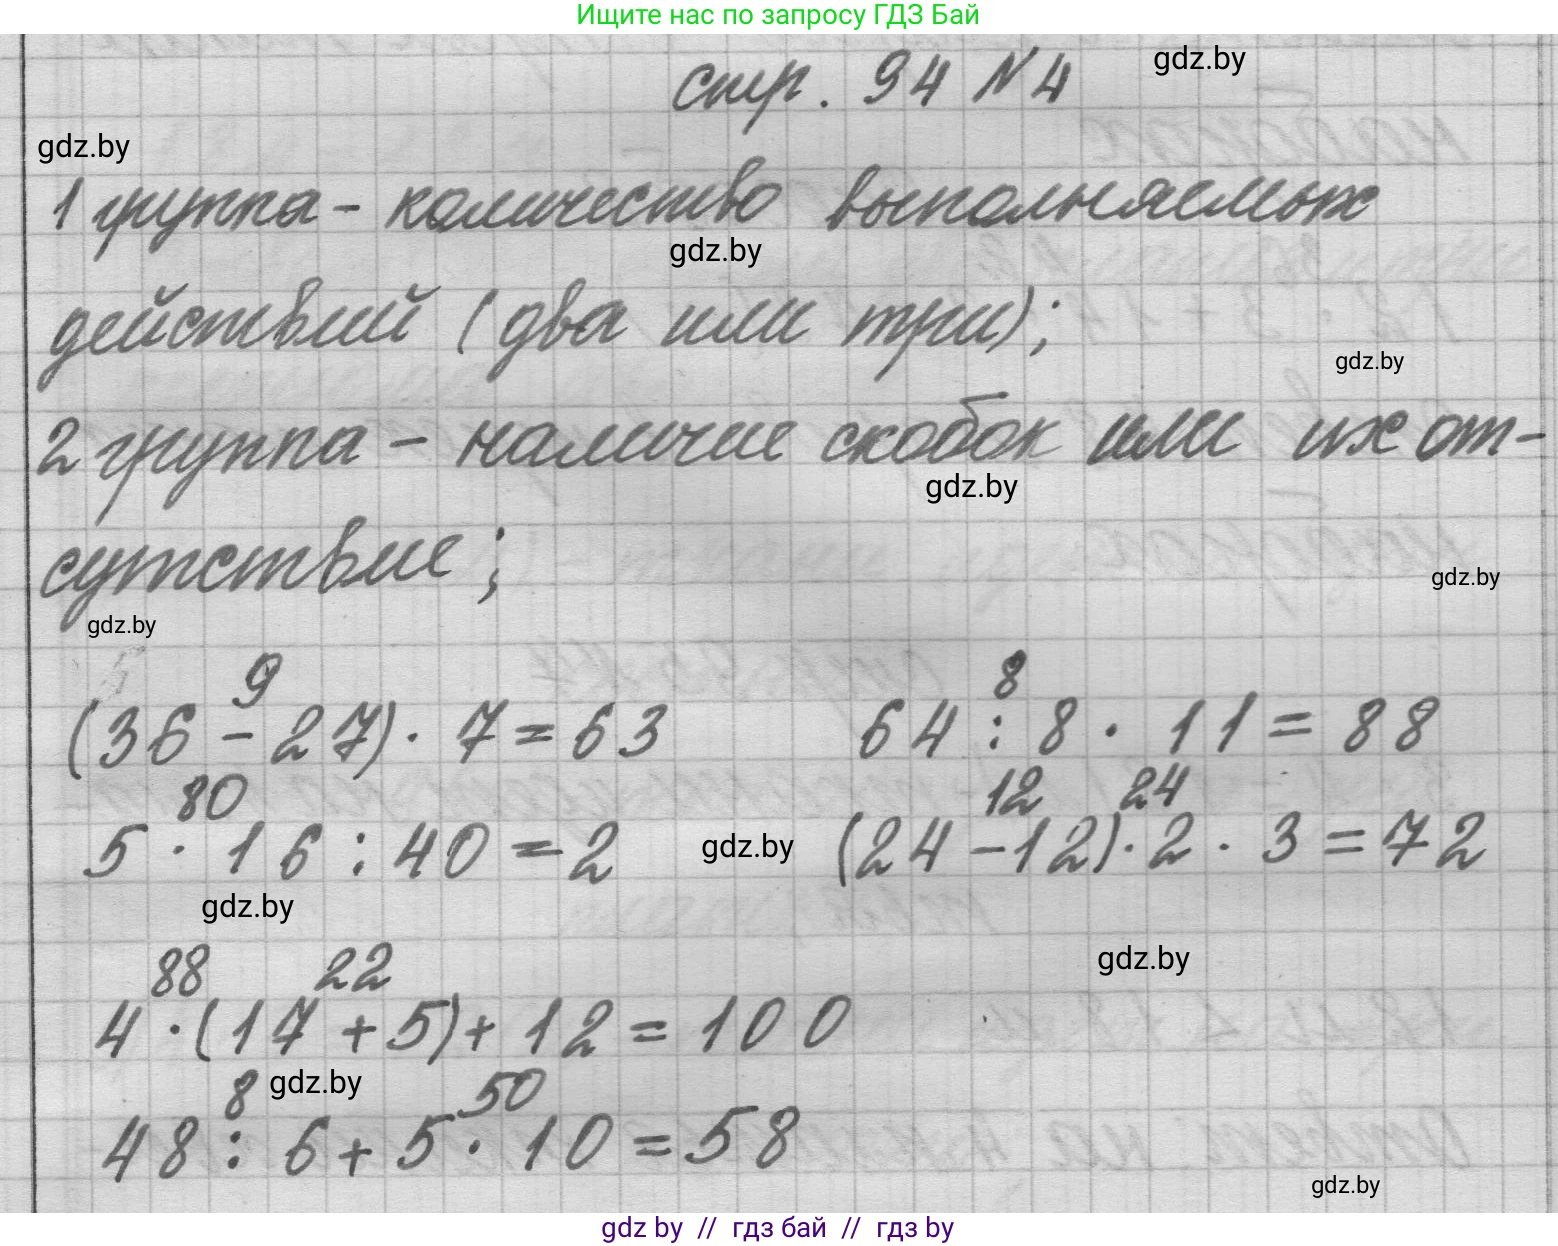 Ищите нас по запросу ГДЗ Бай
стр. 94 № 4
gdz.by
gdz.by
1 группа - количество выполняемых
gdz.by
действий (два или три);
gdz.by
2 группа - наличие скобок или их от-
gdz.by
сутствие;
gdz.by
gdz.by
9 8
(36 - 27) · 7 = 63 64 : 8 · 11 = 88
80 12 24
5 · 16 : 40 = 2 gdz.by (24 - 12) · 2 · 3 = 72
gdz.by
88 22 gdz.by
4 · (17 + 5) + 12 = 100
8 gdz.by 50
48 : 6 + 5 · 10 = 58
gdz.by
gdz by // гдз бай // гдз by